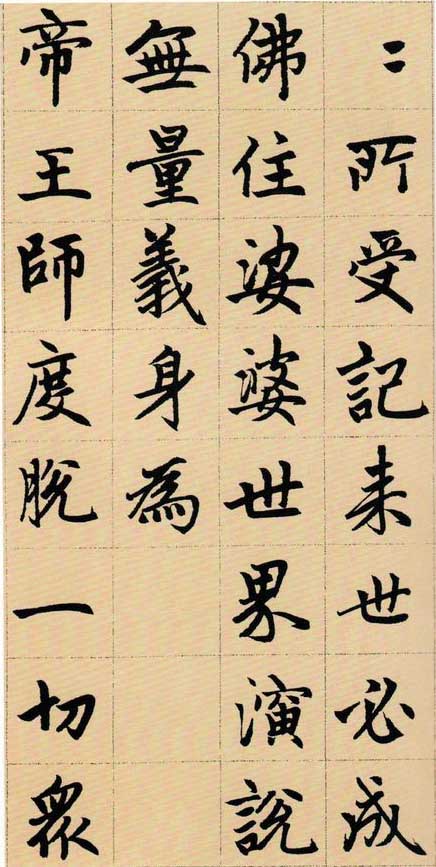 〻所受記来世必成
佛住娑婆世界演説
無量義身為
帝王師度脱一切衆